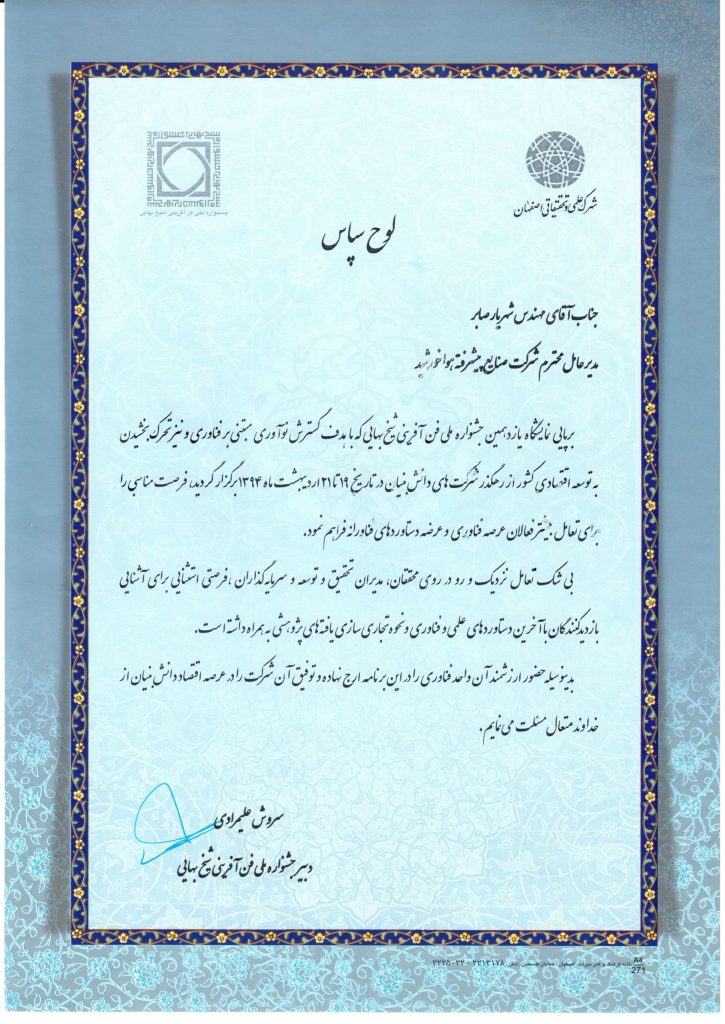 شهرک علمی و تحقیقاتی اصفهان
جشنواره ملی فن آفرینی شیخ بهایی
لوح سپاس
جناب آقای مهندس شهریار صابر
مدیرعامل محترم شرکت صنایع پیشرفته هوا خورشید
برپایی نمایشگاه یازدهمین جشنواره ملی فن آفرینی شیخ بهایی که با هدف گسترش نوآوری مبتنی بر فناوری و نیز تحرک بخشیدن
به توسعه اقتصادی کشور از رهگذر شرکت های دانش بنیان در تاریخ ۱۹ تا ۲۱ اردیبهشت ماه ۱۳۹۴ برگزار گردید، فرصت مناسبی را
برای تعامل بیشتر فعالان عرصه فناوری و عرضه دستاوردهای فناورانه فراهم نمود.
بی شک تعامل نزدیک و رو در روی محققان، مدیران تحقیق و توسعه و سرمایه گذاران ، فرصتی استثنایی برای آشنایی
بازدیدکنندگان با آخرین دستاوردهای علمی و فناوری و نحوه تجاری سازی یافته های پژوهشی به همراه داشته است.
بدینوسیله حضور ارزشمند آن واحد فناوری را در این برنامه ارج نهاده و توفیق آن شرکت را در عرصه اقتصاد دانش بنیان از
خداوند متعال مسئلت می نمایم.
سروش علیمرادی
دبیر جشنواره ملی فن آفرینی شیخ بهایی
A4
271
خانه فرهنگ و هنر میراث، اصفهان، خیابان فلسطین، تلفن: ۲۲۱۳۱۷۸ - ۲۲۲۵۰۲۴